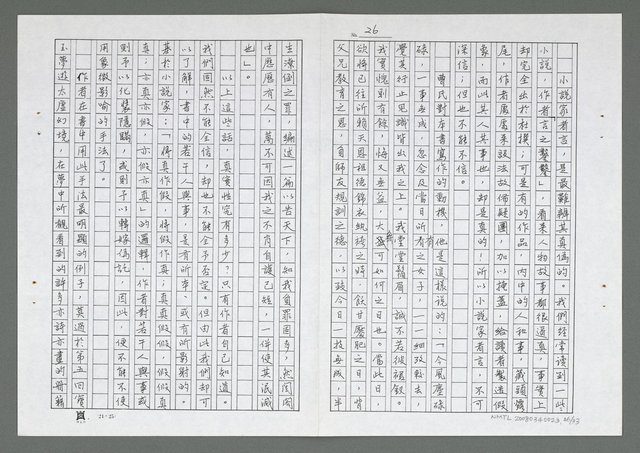 26
小說家者言，是最難辨其真偽的。我們經常讀到一些
小說，作者言之鑿鑿，看來人物故事都很逼真，事實上
却完全出於杜撰；可是有的作品，內中的人和事，藏頭露
尾，作者處處來設法故佈疑團，加以掩蓋，給讀者製造假
象，而此其人其事也，却是真的！所以小說家者言，不可
深信；但也不能不信。
曹氏對本書寫作的動機，他是這樣說的：「今風塵碌
碌，一事無成，忽念及當日所有之女子，一一細攷較去，
覺其行止見識皆出我之上。我堂堂鬚眉，誠不若彼裙釵。
我實愧則有餘，悔又無益，大無可如何之日也。當此日，
欲將已往所賴天恩祖德錦衣紈絝之時，飫甘饜肥之日，背
父兄教育之恩，負師友規訓之德，以致今日一技無成，半
生潦倒之罪，編述一篇以告天下，知我負罪固多，然閨閣
中歷歷有人，萬不可因我之不肖自護己短，一併使其泯滅
也」。
以上這些話，真實性究有多少？只有作者自己知道。
我們固然不能全信，却也不能全予否定。但由此我們却可
以了解，書中的若干人與事，是有所本、或有所影射的。
基於小說家：「將真作假，將假作真；真真假假，假假真
真；亦真亦假，亦假亦真」的邏輯，作者對若干人與事或
則予以化裝隱瞞，或則予以轉嫁偽託，因此，便不能不使
用象徵影喻的手法了。
作者在書中用此手法最明顯的例子，莫過於第五回寶
玉夢遊太虛幻境，在夢中所觀看到的許多亦詩亦畫的冊籍
NMTL 20080340023 26/33